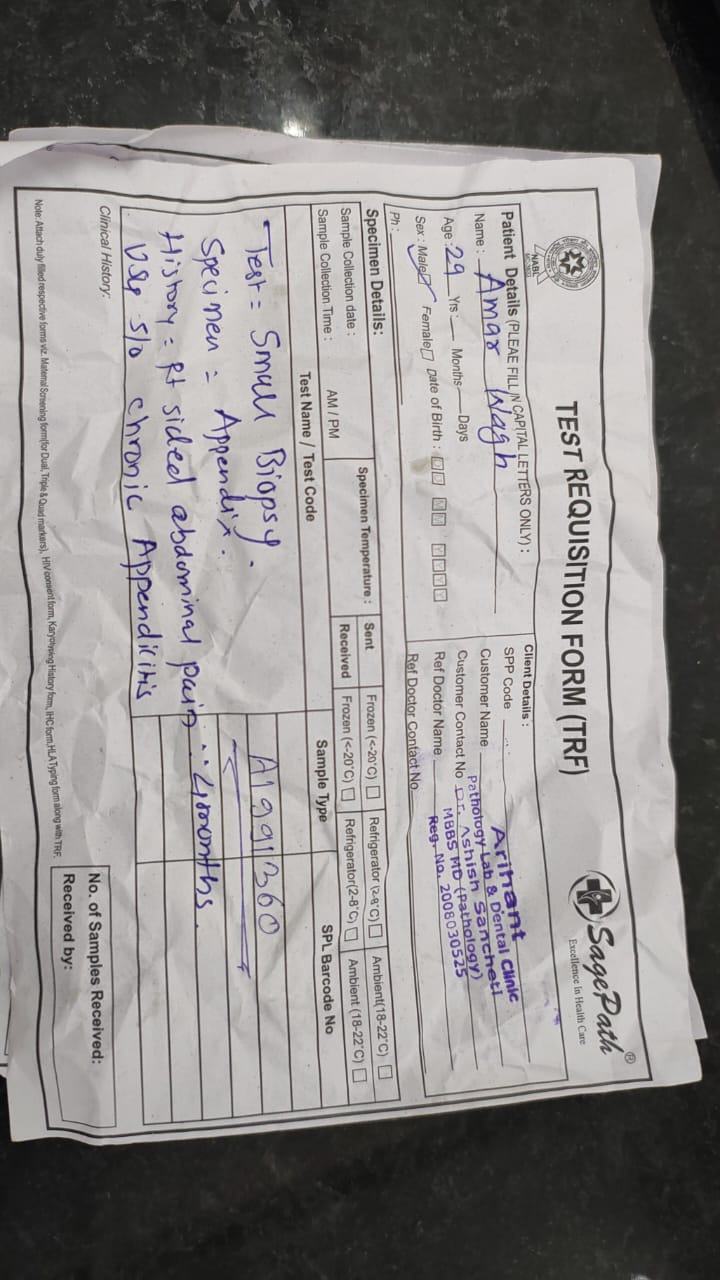 TEST REQUISITION FORM (TRF)
SagePath®
Excellence In Health Care
NABL
Patient Details (PLEAE FILL IN CAPITAL LETTERS ONLY) :
Name : Amar Wagh
Age : 29 Yrs : Months Days
Sex : Male Female Date of Birth : D D M M Y Y Y Y
Ph :
Client Details :
SPP Code
Customer Name
Customer Contact No
Ref Doctor Name
Ref Doctor Contact No
Arihant
Pathology Lab & Dental Clinic
Dr. Ashish Sancheti
MBBS MD (Pathology)
Reg. No. 2008030525
Specimen Details:
Sample Collection date :
Sample Collection Time : AM / PM
Specimen Temperature :
Sent Frozen (<-20°C) Refrigerator (2-8°C) Ambient(18-22°C)
Received Frozen (<-20°C) Refrigerator(2-8°C) Ambient (18-22°C)
Test Name / Test Code Sample Type SPL Barcode No
Test = Small Biopsy. A1991360
Specimen = Appendix.
History = Rt sided abdominal pain .. 4months.
USG S/o chronic Appendicitis
Clinical History:
No. of Samples Received:
Received by:
Note: Attach duly filled respective forms viz. Maternal Screening form(for Dual, Triple & Quad markers), HIV consent form, Karyotyping History form, IHC form, HLA Typing form along with TRF.